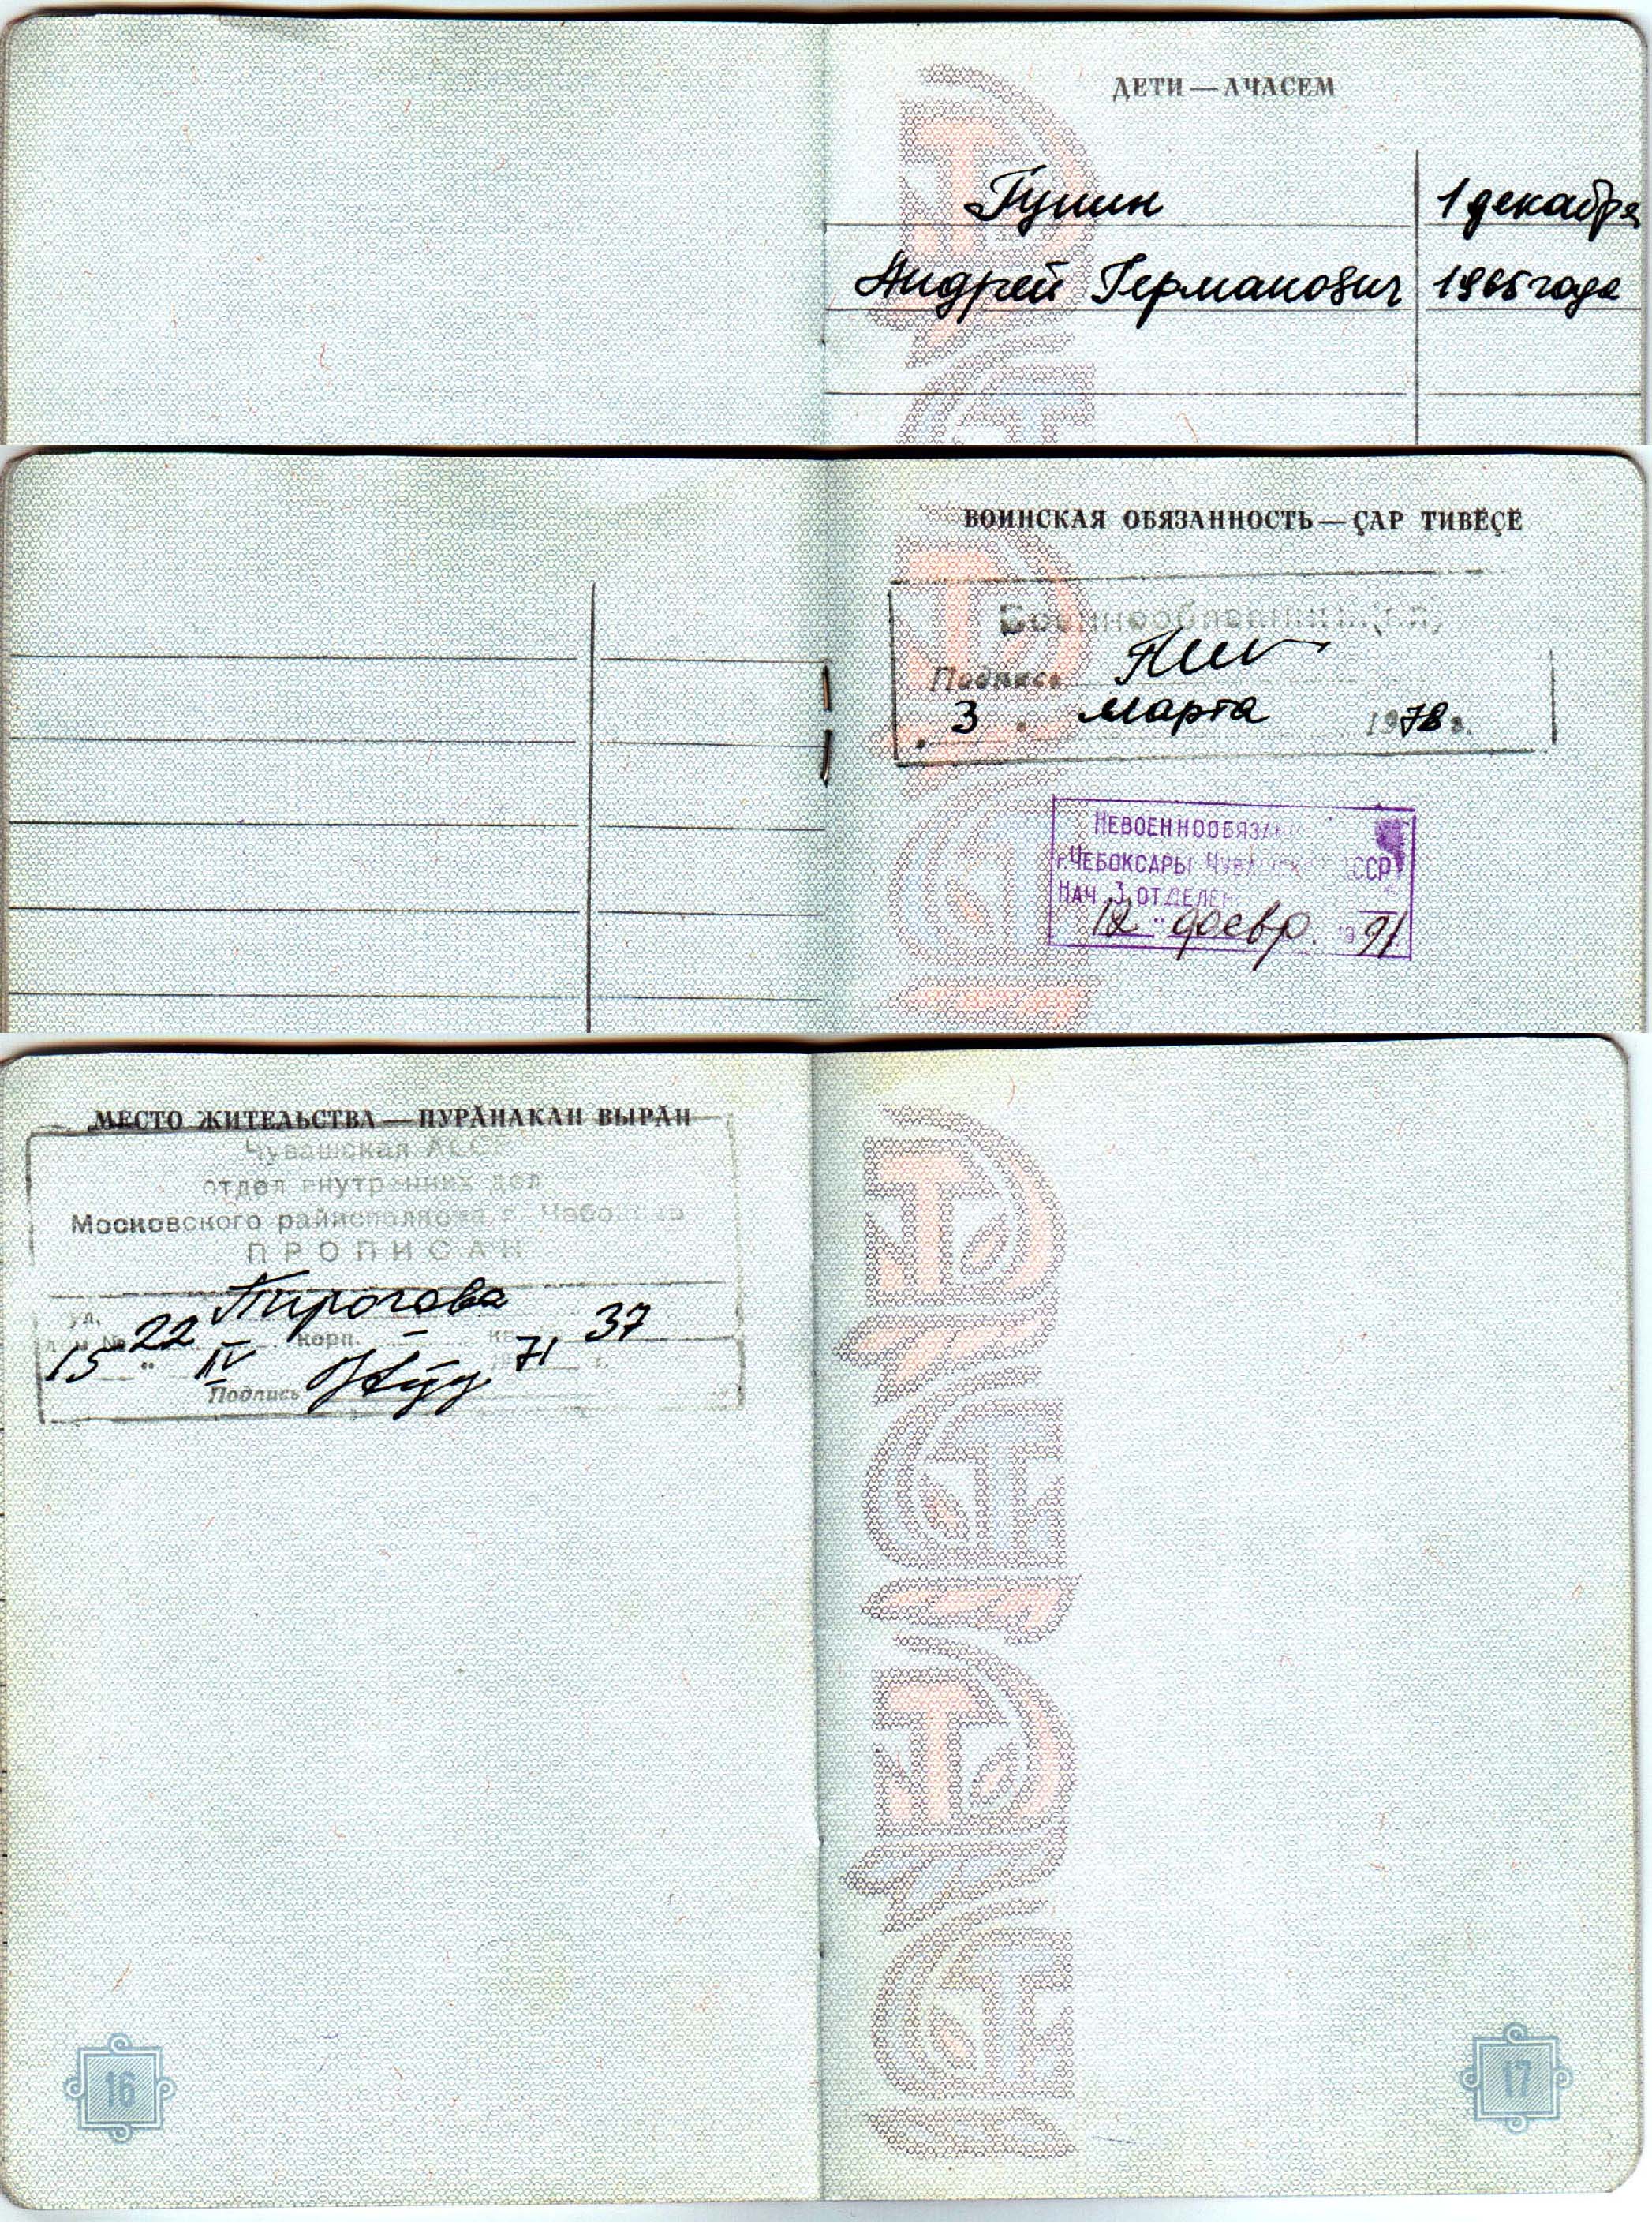 ДЕТИ — АЧАСЕМ
Гушин 1 декабря
Андрей Германович 1965 года
ВОИНСКАЯ ОБЯЗАННОСТЬ — ҪАР ТИВӖҪӖ
Военнообязанный(ая)
Подпись
" 3 " марта 1978 г.
НЕВОЕННООБЯЗАН
г. ЧЕБОКСАРЫ ЧУВАШСКОЙ АССР
НАЧ. 3 ОТДЕЛЕН
12 " февр. 1991
МЕСТО ЖИТЕЛЬСТВА — ПУРӐНАКАН ВЫРӐН
Чувашская АССР
отдел внутренних дел
Московского райисполкома г. Чебоксар
ПРОПИСАН
ул. Пирогова
дом № 22 корп. – кв. 37
15 " IV 71 г.
Подпись
16
17